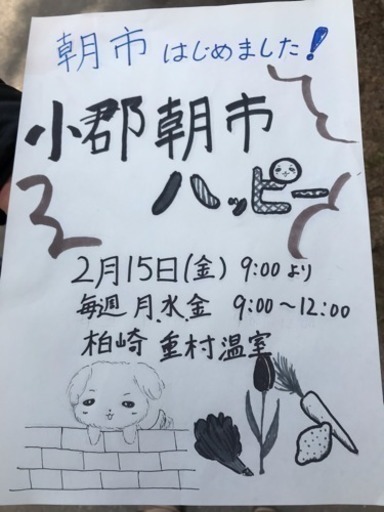 朝市 はじめました!
小郡朝市
ハッピー
2月15日(金) 9:00より
毎週 月、水、金 9:00〜12:00
柏崎 重村温室